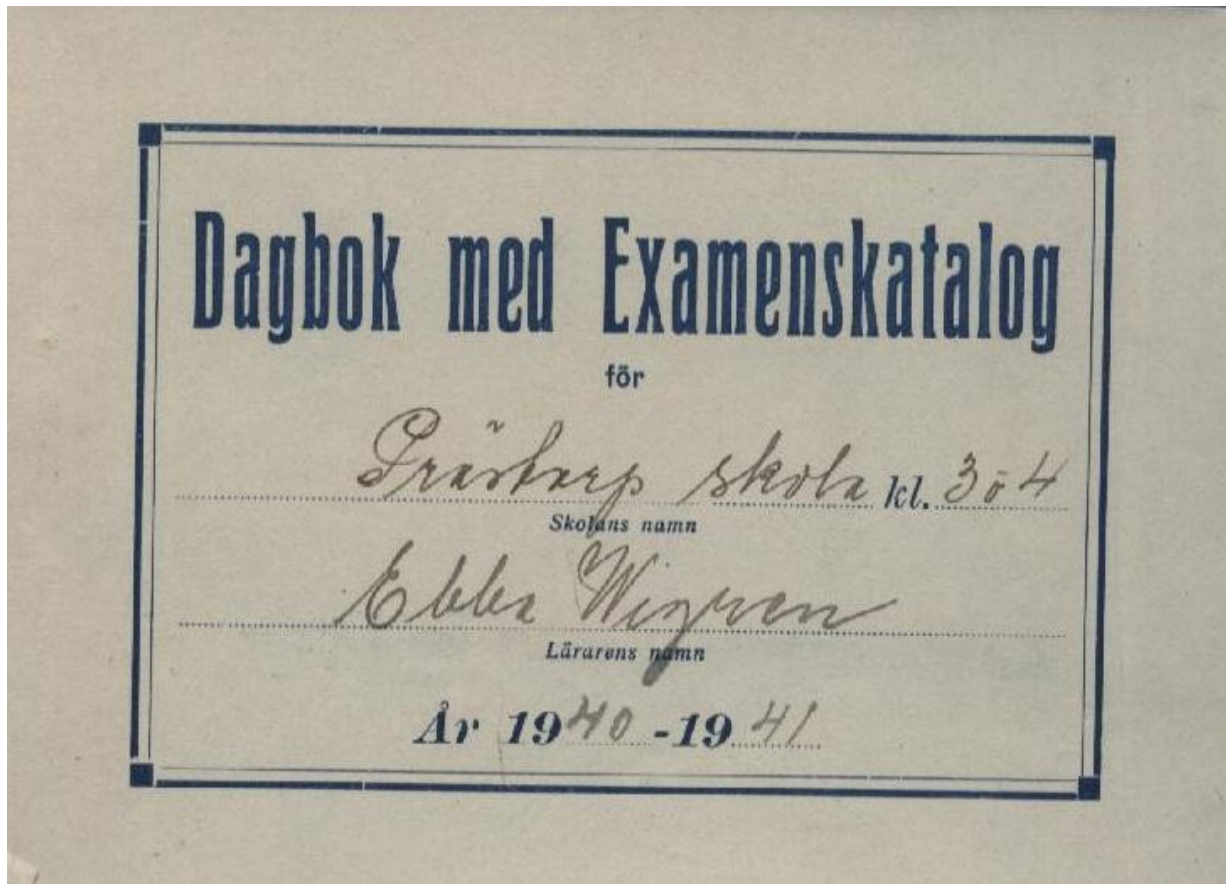 Dagbok med Examenskatalog
för
Prästorp skola kl. 3 o 4
Skolans namn
Ebba Wigren
Lärarens namn
År 1940-1941